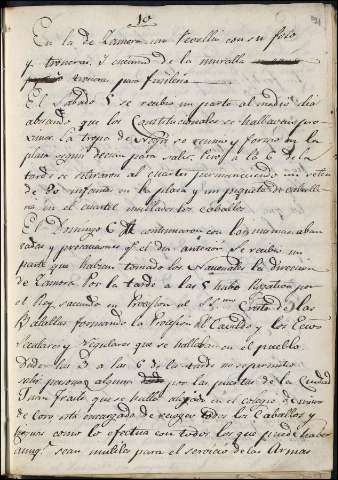 10
En la de Zamora un Revellin con su foso
y troneras, y encima de la muralla
troneras para fusileria
El Sabado 5 se recibio un parte al medio dia
abisando que los Constitucionales se hallaban pro-
ximos. La tropa de se reunio y formó en la
plaza segun decian para salir, pero á las 6 de la
tarde se retiraron al cuartel permaneciendo un reten
de 20 infantes en la plaza y un piquete de caballe-
ria en el cuartel ensillados los caballos.
El Domingo 6 continuaron con las mismas aban-
zadas y precauciones qe. el dia anterior. Se recibio un
parte que habian tomado los Nacionales la direccion
de Zamora. Por la tarde á las 5 hubo Rogativa por
el Rey, sacando en Procesion al SSmo. Cristo de las
Batallas formando la Procesion el Cavildo y los Eccos
Seculares y Regulares que se hallaban en el pueblo.
Dadas las 3 a las 6 de la tarde no se permitio
salir persona alguna por las puertas de la Ciudad
Juan Fraile que se halla alojado en el colegio de niños
de Coro está encargado de recoger todos los Caballos y
como lo efectua con todos los que puede haber
aunqe. sean inutiles para el servicio de las Armas